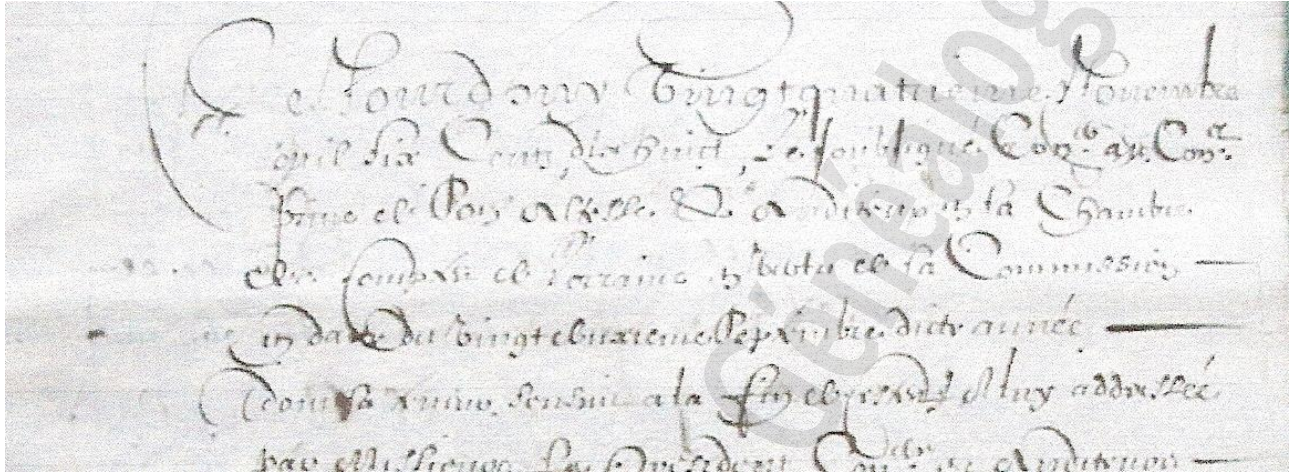 Ce Jourdhuy vingtquatrieme Nouembre
mil six Centz dix huict, Le soubsigné Con.er au Con.el
priué de Son Altesse & Auditeur en la Chambre
des Comptes de Lorraine en vertu de la Commission
en datte du vingtdeuxieme Septembre dicte année
dont la teneur sensuit a la fin des presentes A luy addressée
par Messieurs les President Con.ers et Auditeurs
Généalog